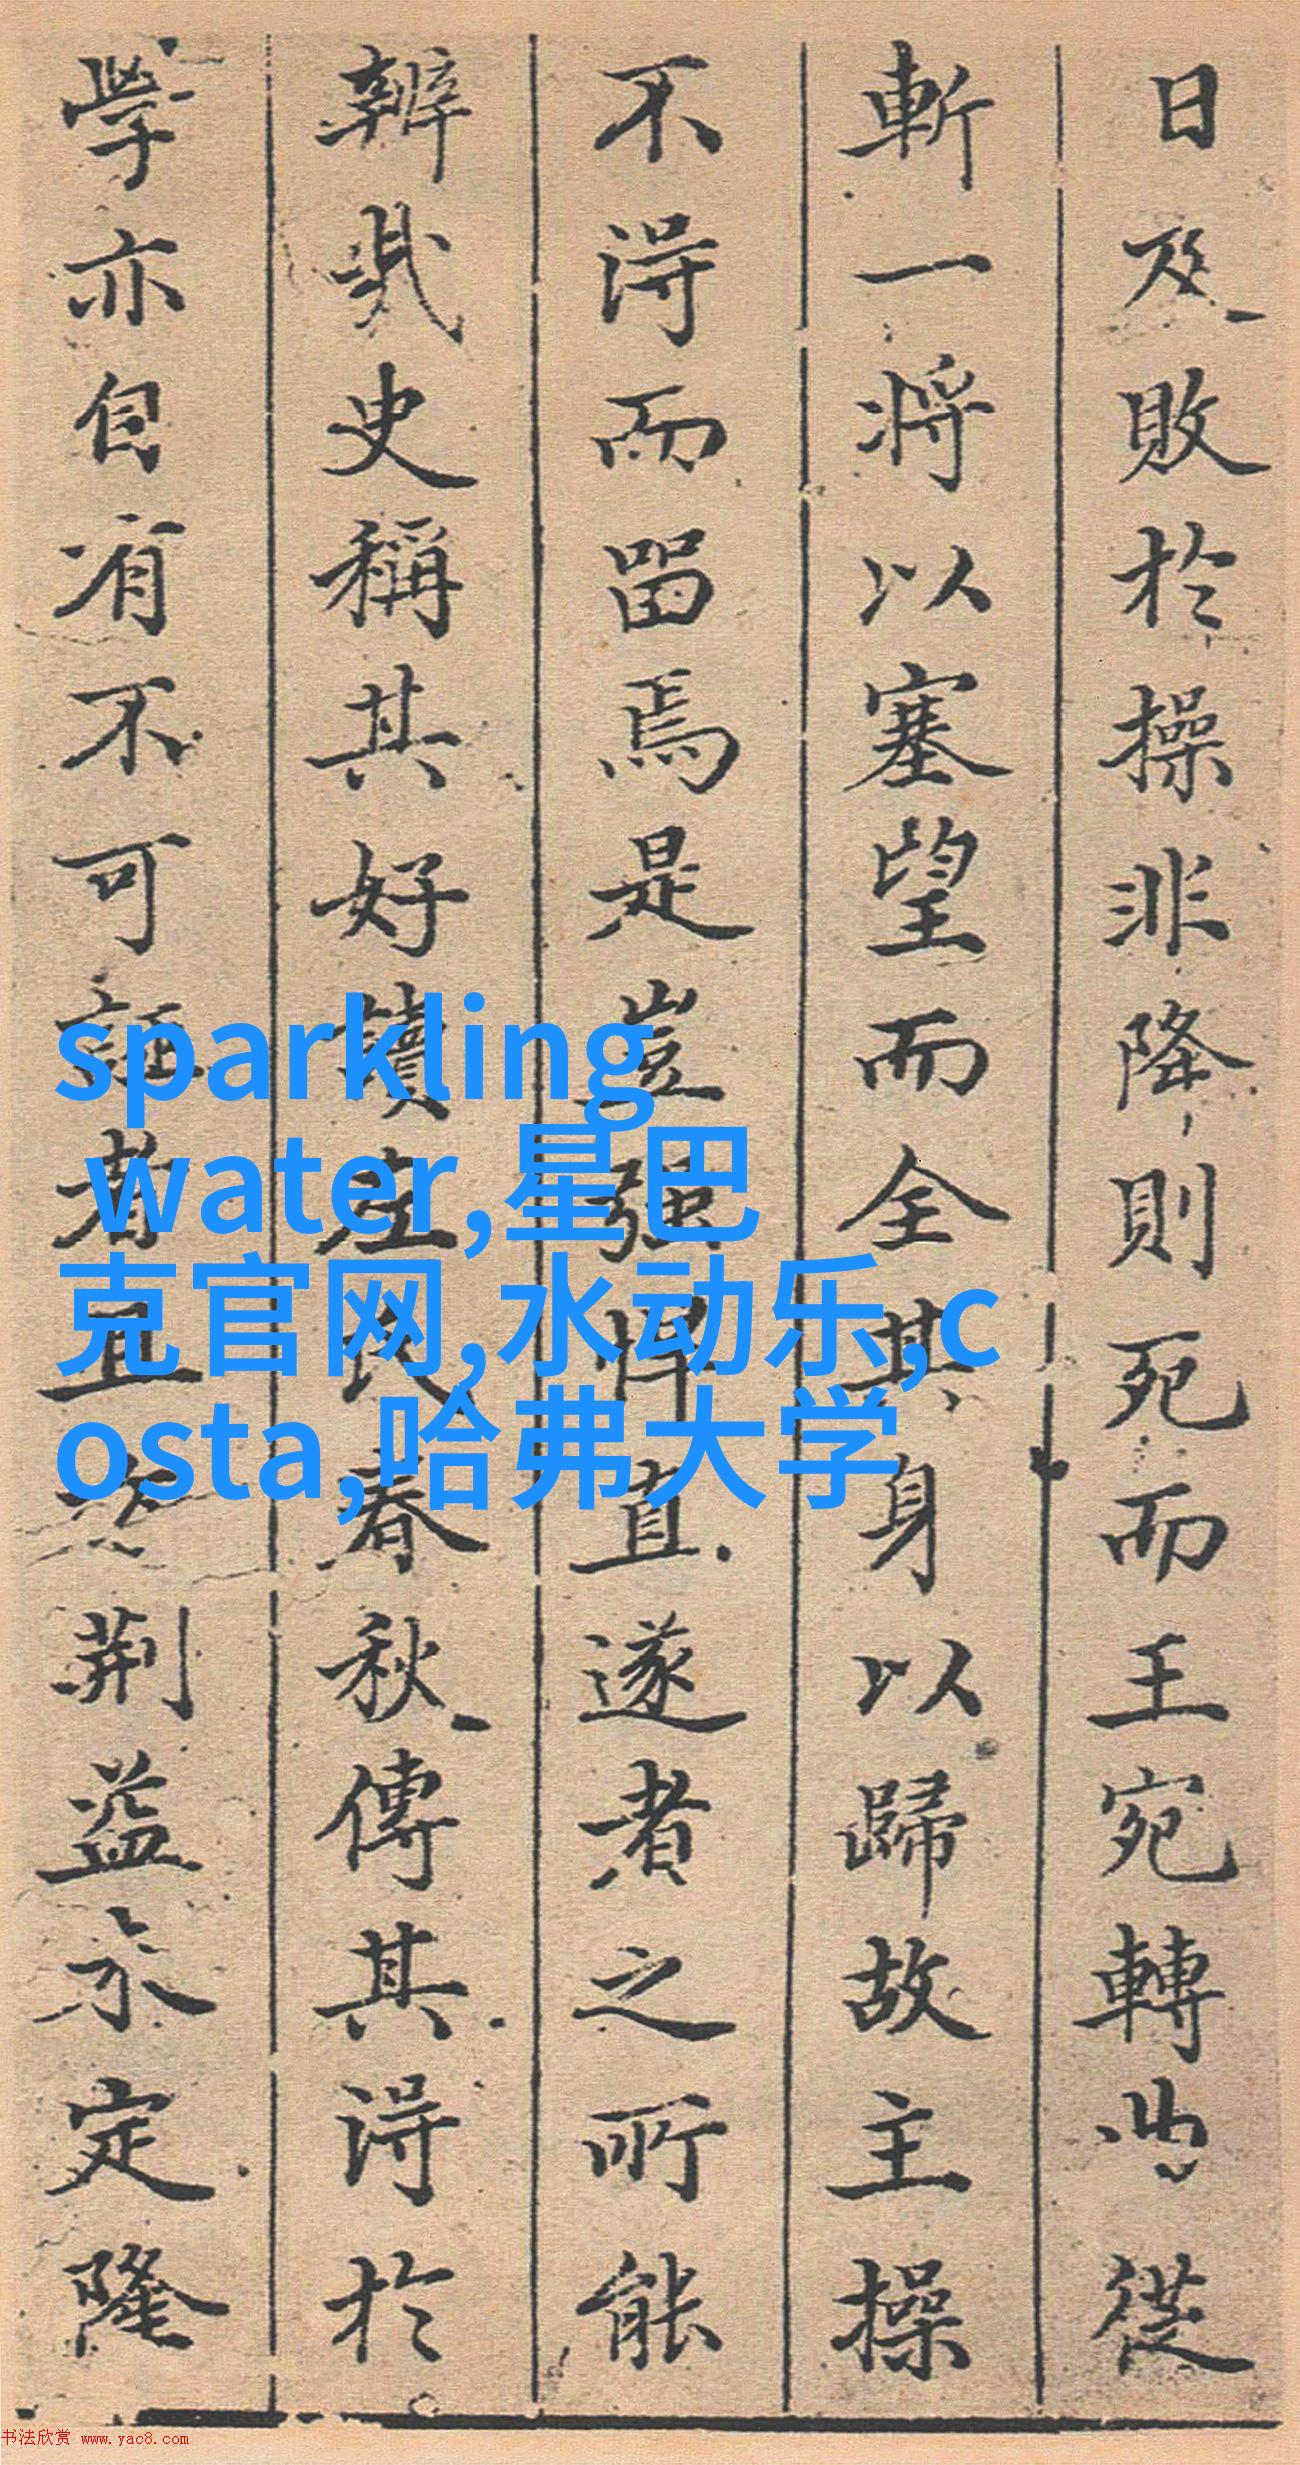 日及敗於操非降則死而王宛轉曲從
斬一将以塞望而全其身以歸故主操
不得而留焉是豈强悍直遂者之所能
辨哉史稱其好讀左氏春秋傳其得於
學亦自有不可誣者且公荆益未定隆
sparkling
water,星巴
克官网,水动乐,c
osta,哈弗大学
书法欣赏 www.yac8.com